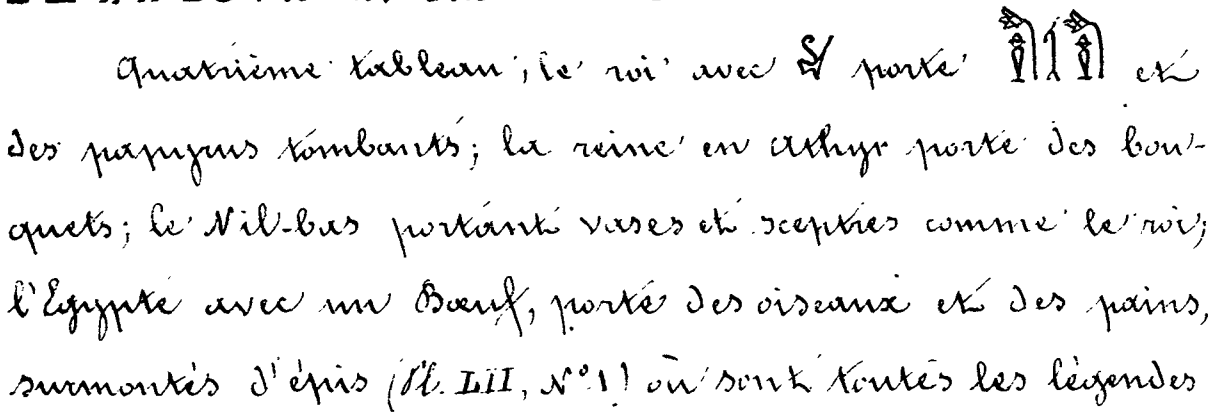 Quatrième tableau, le roi avec porte et
des papyrus tombants; la reine en Athyr porte des bou-
quets; le Nil-bas portant vases et sceptres comme le roi;
l'Egypte avec un Bœuf, porte des oiseaux et des pains,
surmontés d'épis (Pl. LII, N° 1) où sont toutes les légendes